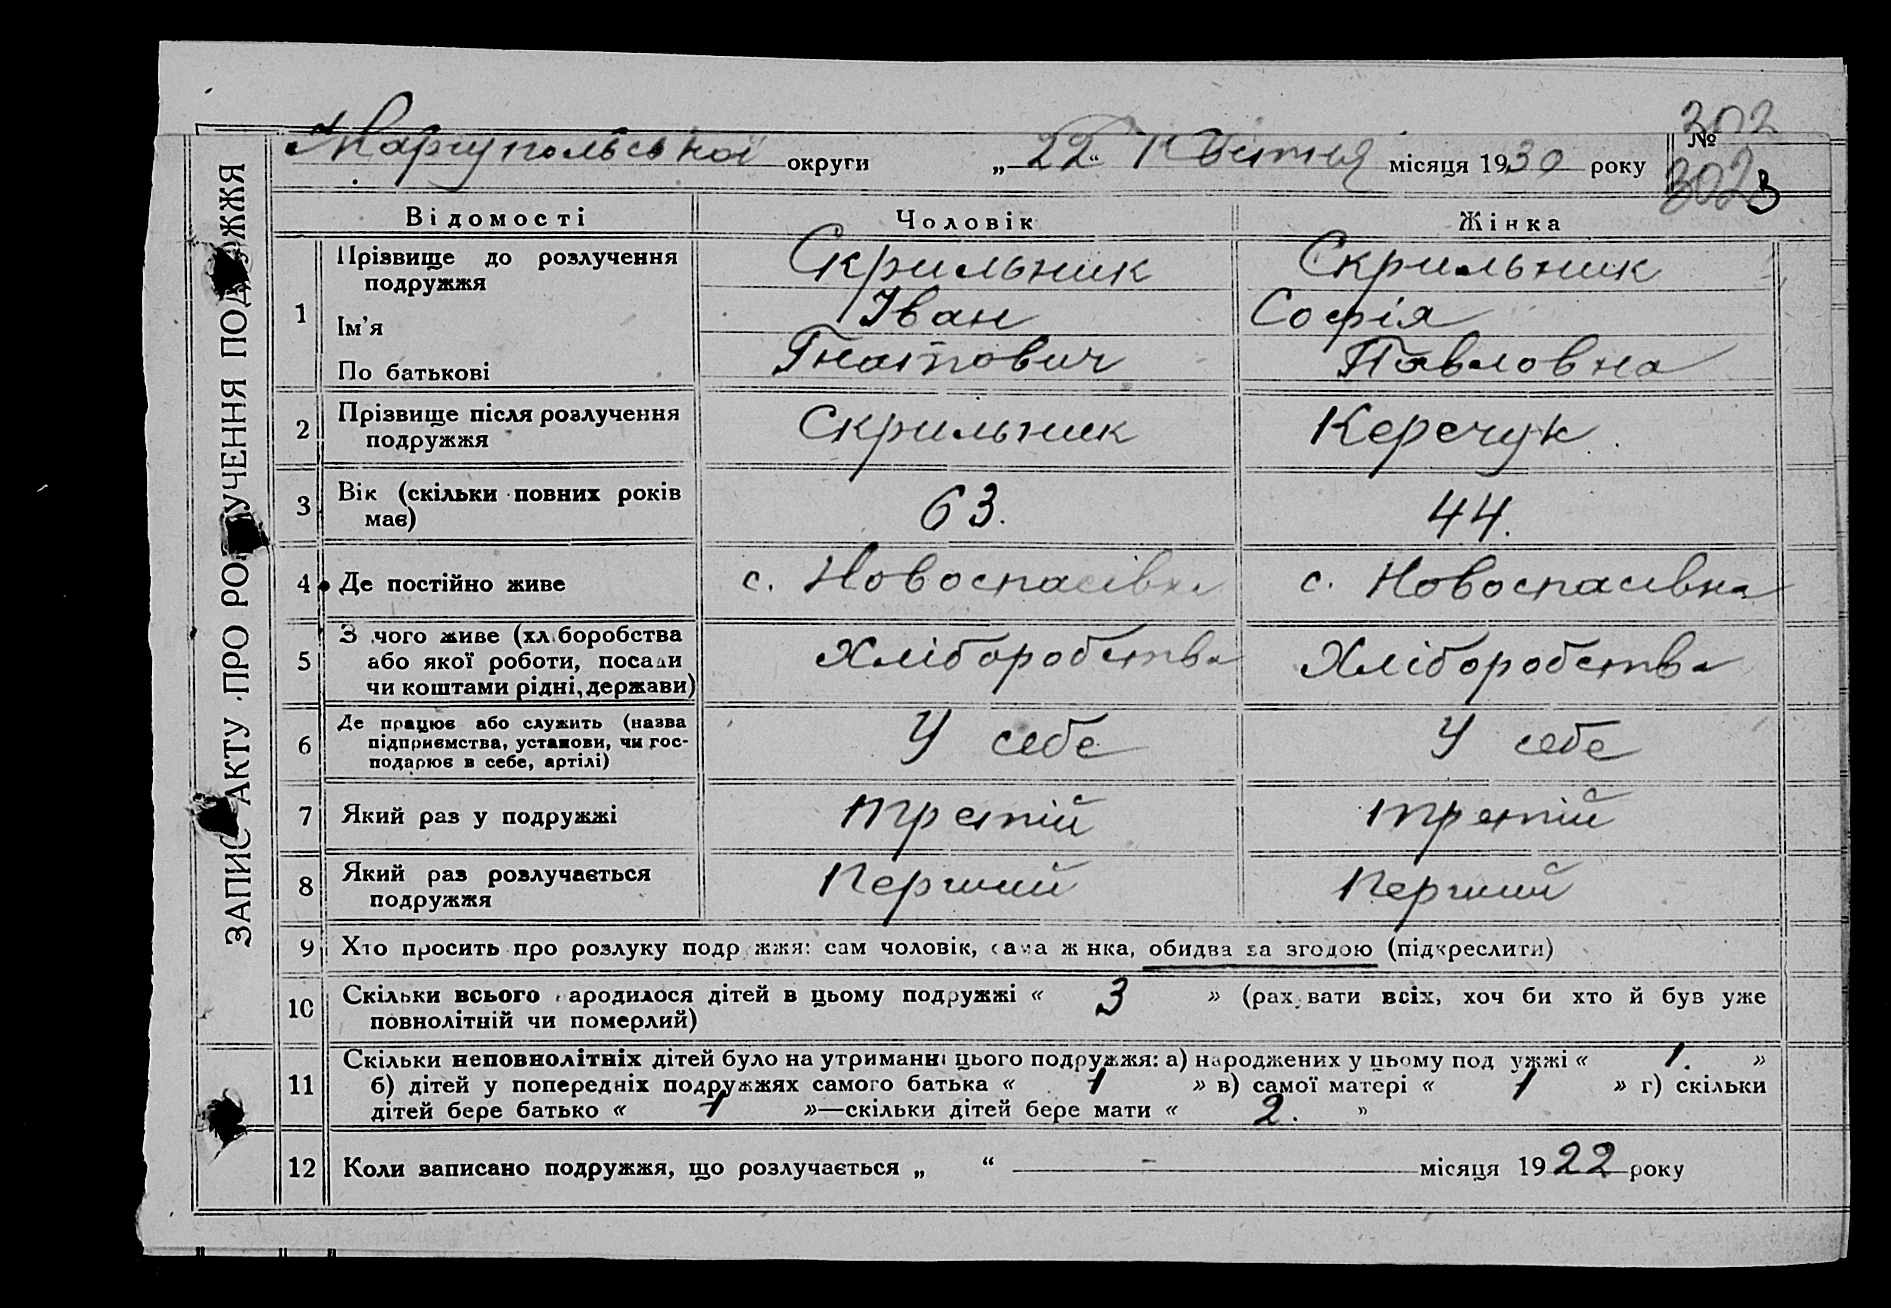 302
Маріупольської округи „22“ Квітня місяця 1930 року №
302 в
ЗАПИС АКТУ ПРО РОЗЛУЧЕННЯ ПОДРУЖЖЯ
Відомості Чоловік Жінка
1 Прізвище до розлучення подружжя Скрильник Скрильник
Ім’я Іван Софія
По батькові Гнатович Павловна
2 Прізвище після розлучення подружжя Скрильник Керечук
3 Вік (скільки повних років має) 63. 44.
4 Де постійно живе с. Новоспасівка с. Новоспасівка
5 З чого живе (хліборобства або якої роботи, посади чи коштами рідні, держави) Хліборобства Хліборобства
6 Де працює або служить (назва підприємства, установи, чи господарює в себе, артілі) У себе У себе
7 Який раз у подружжі третій третій
8 Який раз розлучається подружжя Перший Перший
9 Хто просить про розлуку подружжя: сам чоловік, сама жінка, обидва за згодою (підкреслити)
10 Скільки всього народилося дітей в цьому подружжі « 3 » (рахувати всіх, хоч би хто й був уже
повнолітній чи померлий)
11 Скільки неповнолітніх дітей було на утриманні цього подружжя: а) народжених у цьому подружжі « 1. »
б) дітей у попередніх подружжях самого батька « 1 » в) самої матері « 1 » г) скільки
дітей бере батько « 1 »—скільки дітей бере мати « 2. »
12 Коли записано подружжя, що розлучається „ “ - місяця 1922 року